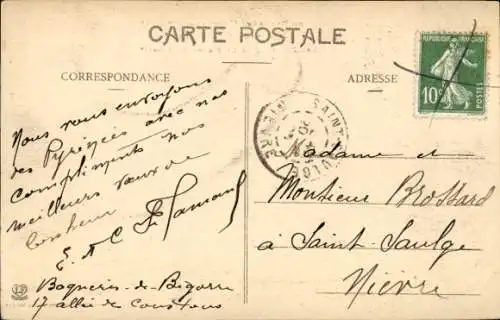 CARTE POSTALE
CORRESPONDANCE
ADRESSE
RÉPUBLIQUE FRANÇAISE
10c
POSTES
SAINT SAULGE
NIEVRE
Nous vous envoyons
des Pyrénées avec nos
compliments nos
meilleurs vœux de
bonheur
E. et C. Flamand
Bagnères-de-Bigorre
17 allée de Coustous
Madame et
Monsieur Brossard
à Saint-Saulge
Nièvre